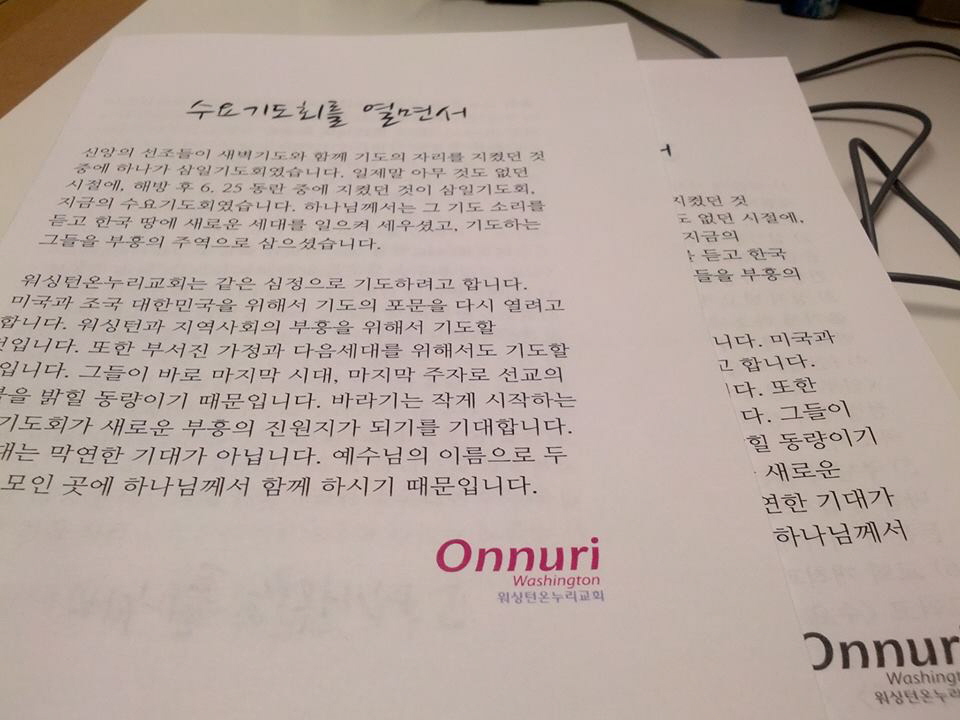 수요기도회를 열면서
신앙의 선조들이 새벽기도와 함께 기도의 자리를 지켰던 것
중에 하나가 삼일기도회였습니다. 일제말 아무 것도 없던
시절에, 해방 후 6. 25 동란 중에 지켰던 것이 삼일기도회,
지금의 수요기도회였습니다. 하나님께서는 그 기도 소리를
듣고 한국 땅에 새로운 세대를 일으켜 세우셨고, 기도하는
그들을 부흥의 주역으로 삼으셨습니다.
워싱턴온누리교회는 같은 심정으로 기도하려고 합니다.
미국과 조국 대한민국을 위해서 기도의 포문을 다시 열려고
합니다. 워싱턴과 지역사회의 부흥을 위해서 기도할
것입니다. 또한 부서진 가정과 다음세대를 위해서도 기도할
입니다. 그들이 바로 마지막 시대, 마지막 주자로 선교의
을 밝힐 동량이기 때문입니다. 바라기는 작게 시작하는
기도회가 새로운 부흥의 진원지가 되기를 기대합니다.
대는 막연한 기대가 아닙니다. 예수님의 이름으로 두
모인 곳에 하나님께서 함께 하시기 때문입니다.
Onnuri
Washington
워싱턴온누리교회
서
지켰던 것
도 없던 시절에,
지금의
듣고 한국
들을 부흥의
니다. 미국과
고 합니다.
다. 또한
다. 그들이
힐 동량이기
새로운
연한 기대가
하나님께서
Onnuri
Washingt
워싱턴온누리